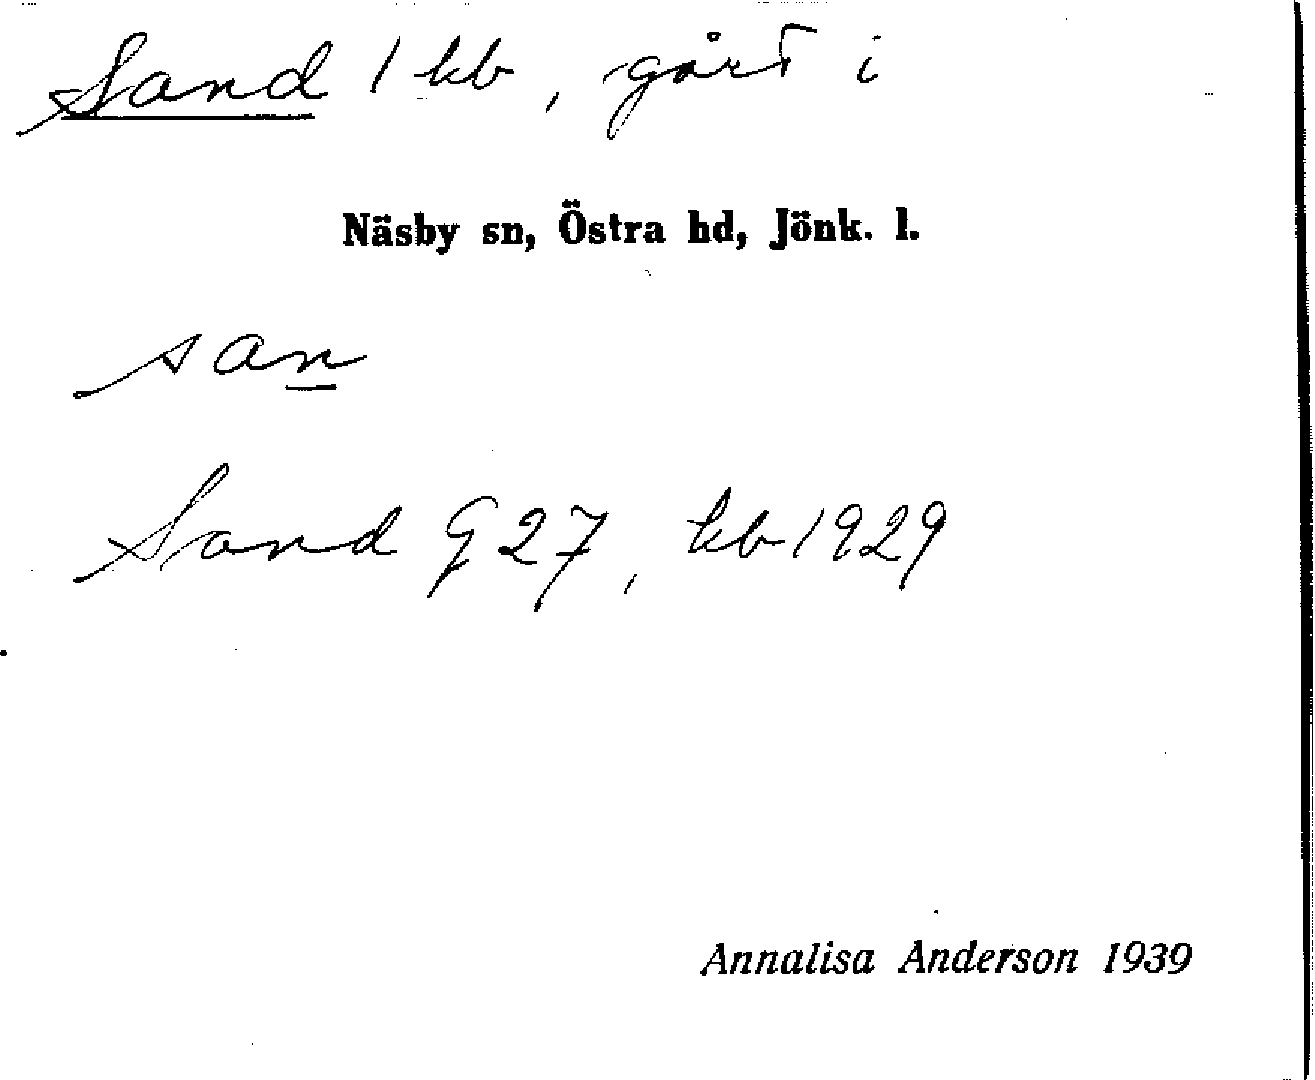 Sand 1 kb, gård i
Näsby sn, Östra hd, Jönk. l.
san
Sand G 27, kb 1929
Annalisa Anderson 1939